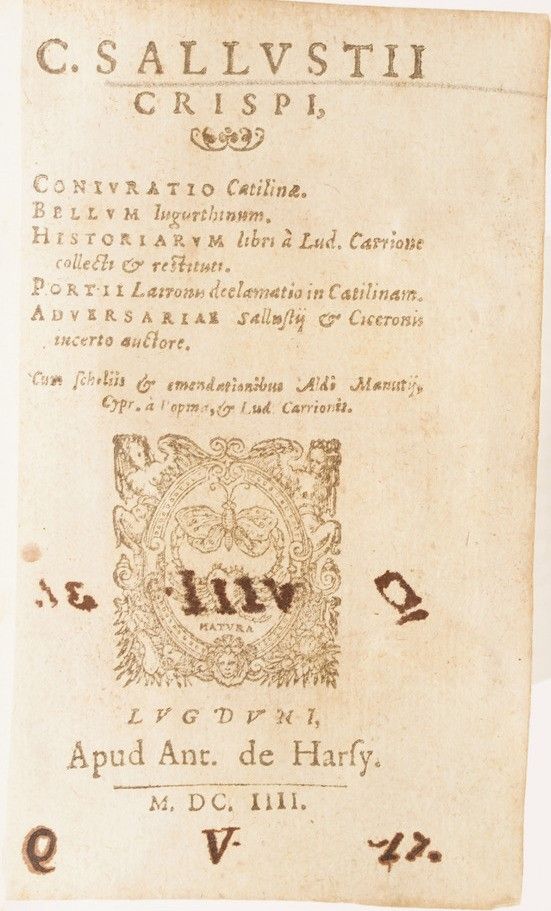 C. SALLVSTII
CRISPI,
CONIVRATIO Catilinæ.
BELLVM Iugurthinum.
HISTORIARVM libri à Lud. Carrione
collecti & restituti.
PORTII Latronis declamatio in Catilinam.
ADVERSARIAE Sallustij & Ciceronis
incerto auctore.
Cum scholiis & emendationibus Aldi Manutij,
Cypr. à Popma, & Lud. Carrionis.
MATVRA
LVGDVNI,
Apud Ant. de Harsy.
M. DC. IIII.
Q V. 17.